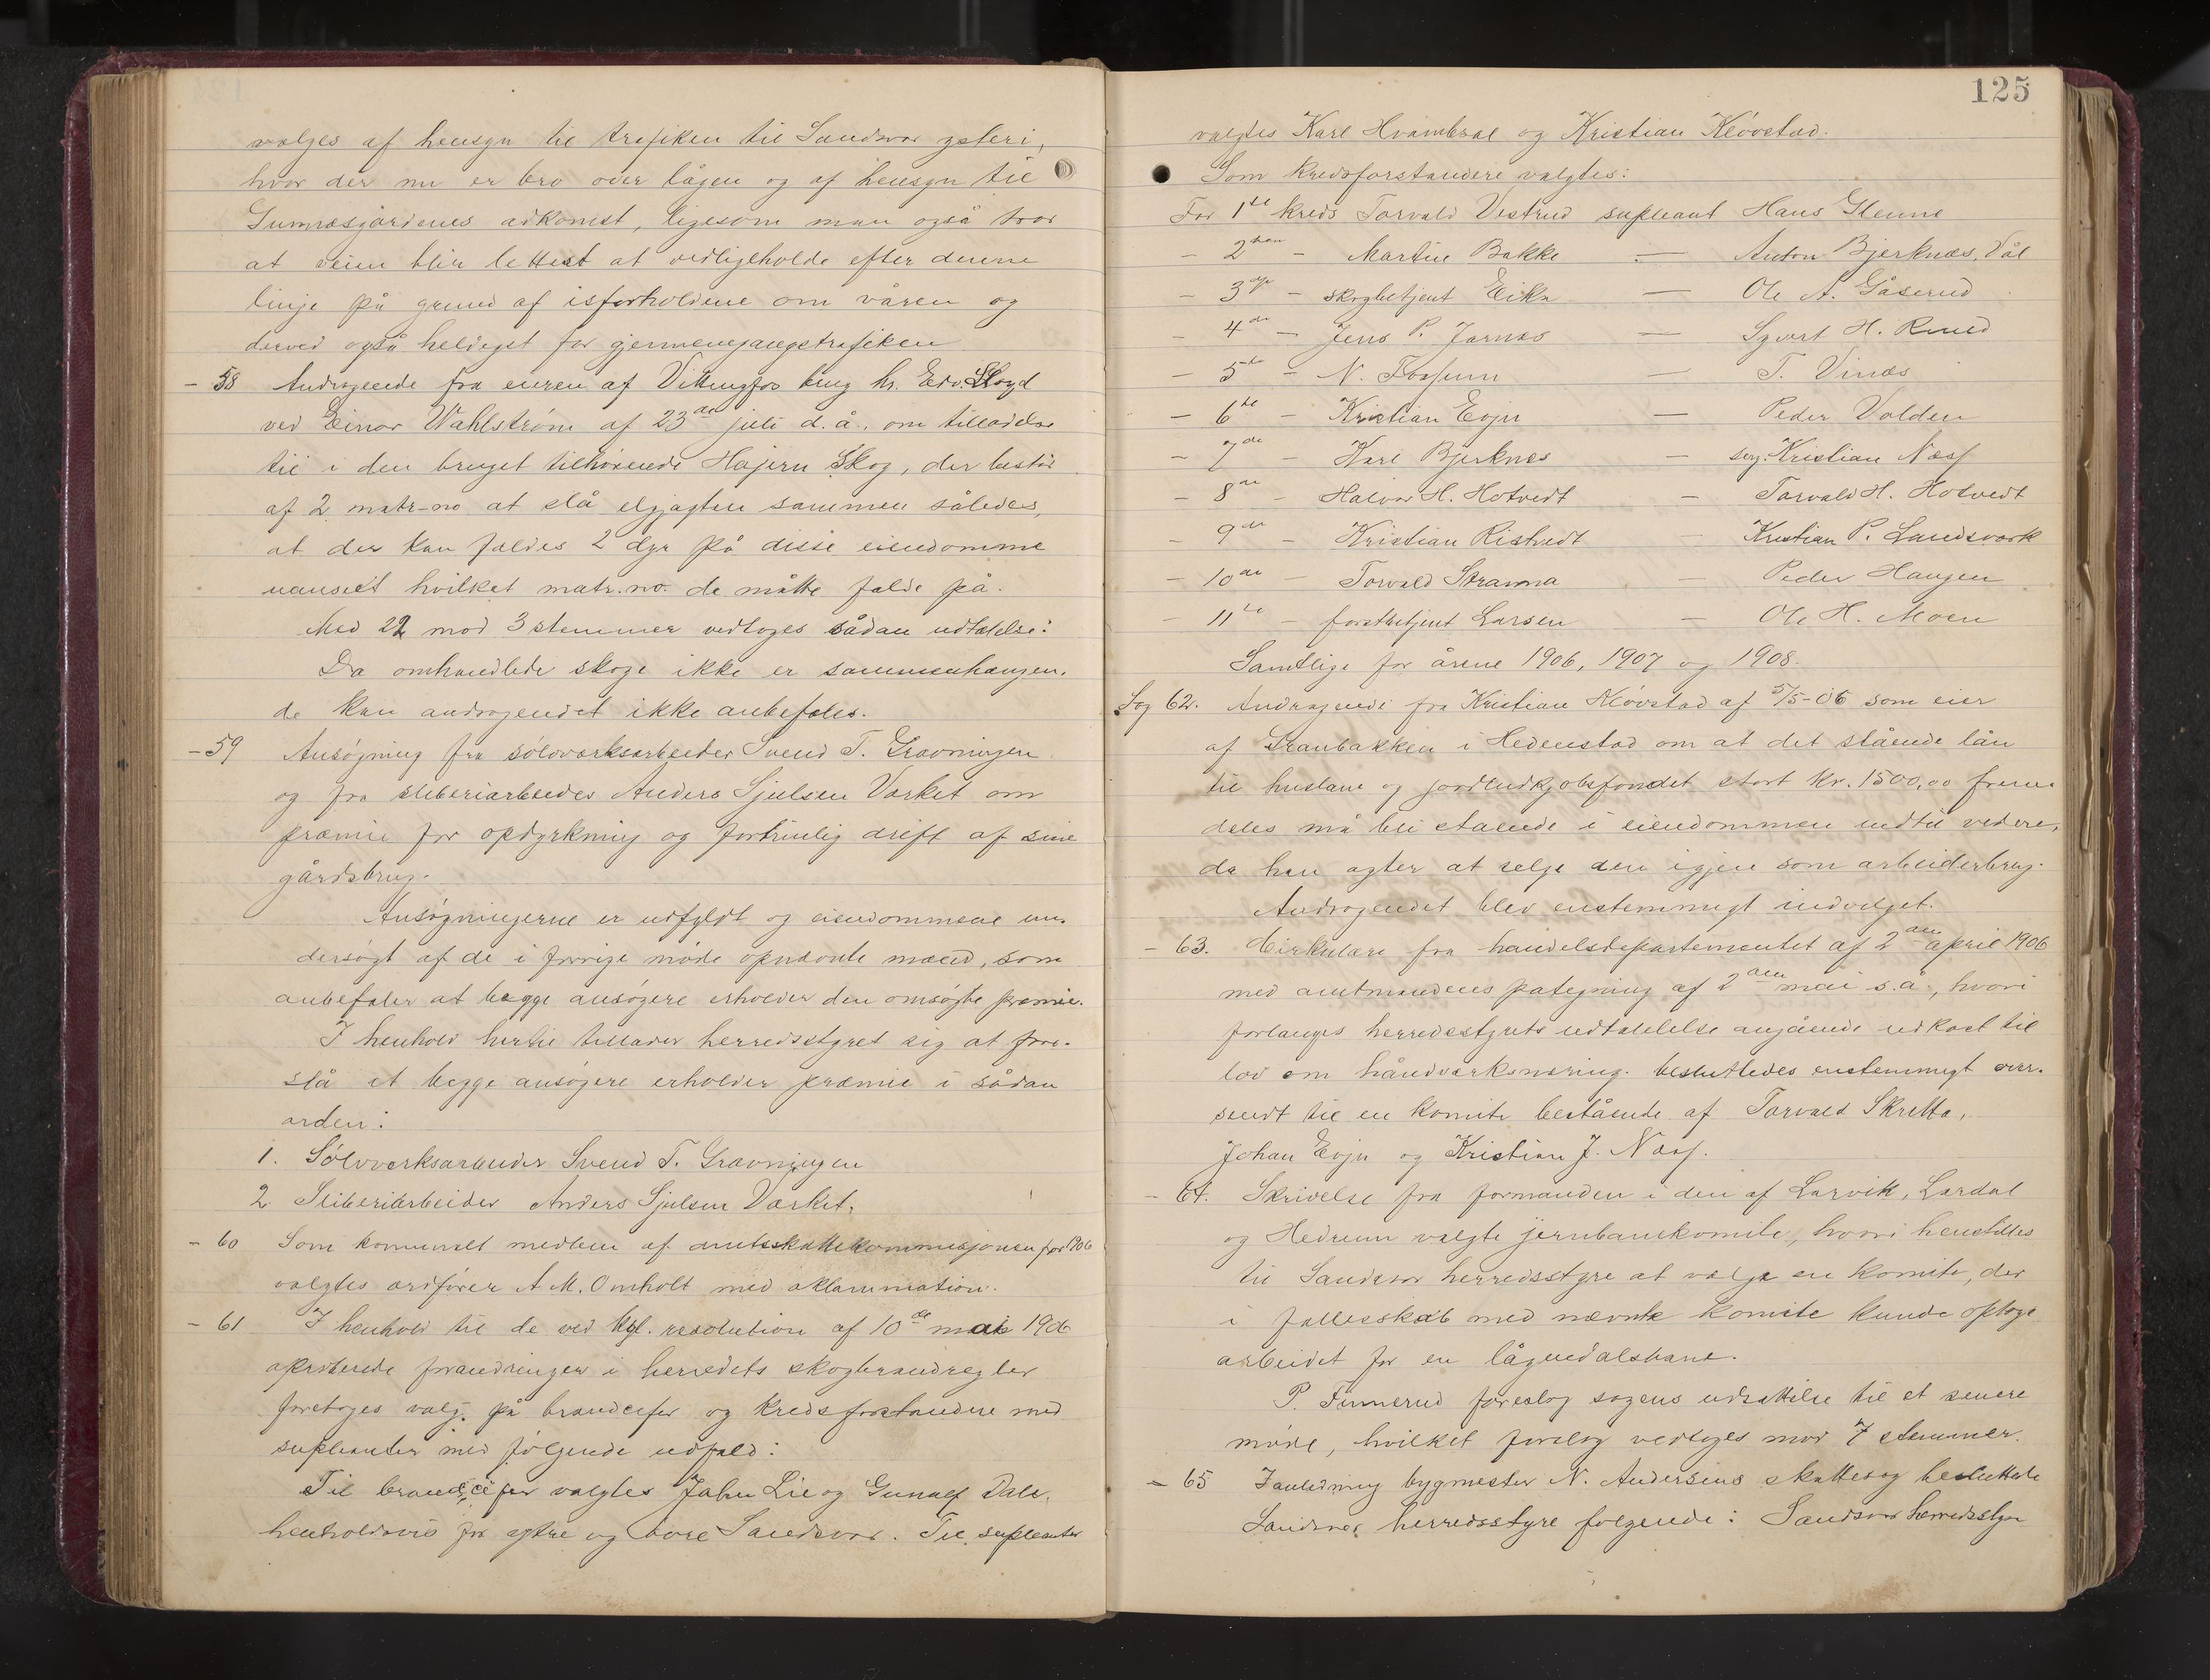 vælges af hensyn til trafiken til Sandsvær ysteri,
hvor der nu er bro over lågen og af hensyn til
Gumæsgårdenes adkomst, ligesom man også tror
at veien blir lettest at vedligeholde efter denne
linje på grund af isforholdene om våren og
derved også heldigst for gjennemgangstrafiken
- 58 Andragende fra eieren af Vittingfos brug hr. Edv. Lloyd
ved Einar Wahlstrøm af 23de juli d.å., om tilladelse
til i den bruget tilhørende Hajern Skog, der består
af 2 matr-no at slå elgjagten sammen således,
at der kan fældes 2 dyr på disse eiendomme
uanseet hvilket matr.no. de måtte falde på.
Med 22 mod 3 stemmer vedtoges sådan udtalelse:
Da omhandlede skoge ikke er sammenhængen-
de kan andragendet ikke anbefales.
- 59 Ansøgning fra sølvværksarbeider Svend T. Gravningen
og fra sliberiarbeider Anders Sjulsen Værket om
præmie for opdyrkning og fortrinlig drift af sine
gårdsbrug.
Ansøgningerne er udfyldt og eiendommene un-
dersøgt af de i forrige møde opnævnte mænd, som
anbefaler at begge ansøgere erholder den omsøgte premie.
I henhold hertil tillader herredsstyret sig at fore-
slå at begge ansøgere erholder præmie i sådan
orden:
1. Sølvverksarbeider Svend T. Gravningen
2 Sliberiarbeider Anders Sjulsen Værket.
- 60 Som komunalt medlem af amtsskattekommisjonen for 1906
valgtes ordfører A. M. Omholt med aklammation.
- 61 I henhold til de ved kgl. resolution af 10de mai 1906
aproberede forandringer i herredets skogbrandregler
foretoges valg på brandcefer og kredsforstandere med
supleanter med følgende udfald:
Til brandcefer valgtes John Lie og Gunulf Dale,
henholdsvis for ytre og øvre Sandsvær. Til supleanter
125
valgtes Karl Hvambral og Kristian Kløvstad.
Som kredsforstandere valgtes:
For 1ste kreds Torvald Vestrud supleant Hans Glenne
- 2den - Martin Bakke — Anton Bjerknæs, Vål
- 3dje - skogbetjent Eika — Ole A. Gåserud
- 4de - Jens P. Jarnæs — Syvert H. Ruud
- 5te - N. Fossum — T. Vinæs
- 6te - Kristian Evju — Peder Volden
- 7de - Karl Bjerknes — sog. Kristian Næss
- 8de - Halvor H. Hotvedt — Torvald H. Hotvedt
- 9de - Kristian Ristvedt — Kristian P. Landsværk
- 10de - Torvald Stramma — Peder Haugen
- 11te - forstbetjent Larsen — Ole H. Moen
Samtlige for årene 1906, 1907 og 1908.
Sag 62. Andragende fra Kristian Kløvstad af 5/5-06 som eier
af Granbakken i Hedenstad om at det stående lån
til huslåne og jordindkjøbsfondet stort kr. 1500,00 frem-
deles må bli stående i eiendommen indtil videre,
da han agter at selge den igjen som arbeiderbrug.
Andragendet blev enstemmigt indvilget.
- 63. Cirkulære fra handelsdepartementet af 2den april 1906
med amtmandens påtegning af 2den mai s.å., hvori
forlanges herredsstyrets udtalelse angående udkast til
lov om håndværksnæring. besluttedes enstemmigt over-
sendt til en komite bestående af Torvald Skretta,
Johan Evju og Kristian J. Næss.
- 64. Skrivelse fra formanden i den af Larvik, Lardal
og Hedrum valgte jernbanekomite, hvori henstilles
til Sandsvær herredsstyre at vælge en komite, der
i fællesskab med nævnte komite kunde optage
arbeidet for en lågendalsbane.
P. Finnerud foreslog sagens udsættelse til et senere
møde, hvilket forslag vedtoges mod 7 stemmer.
- 65 I anledning bygmester N. Andersens skattesag besluttede
Sandsvær herredsstyre følgende: Sandsvær herredsstyre